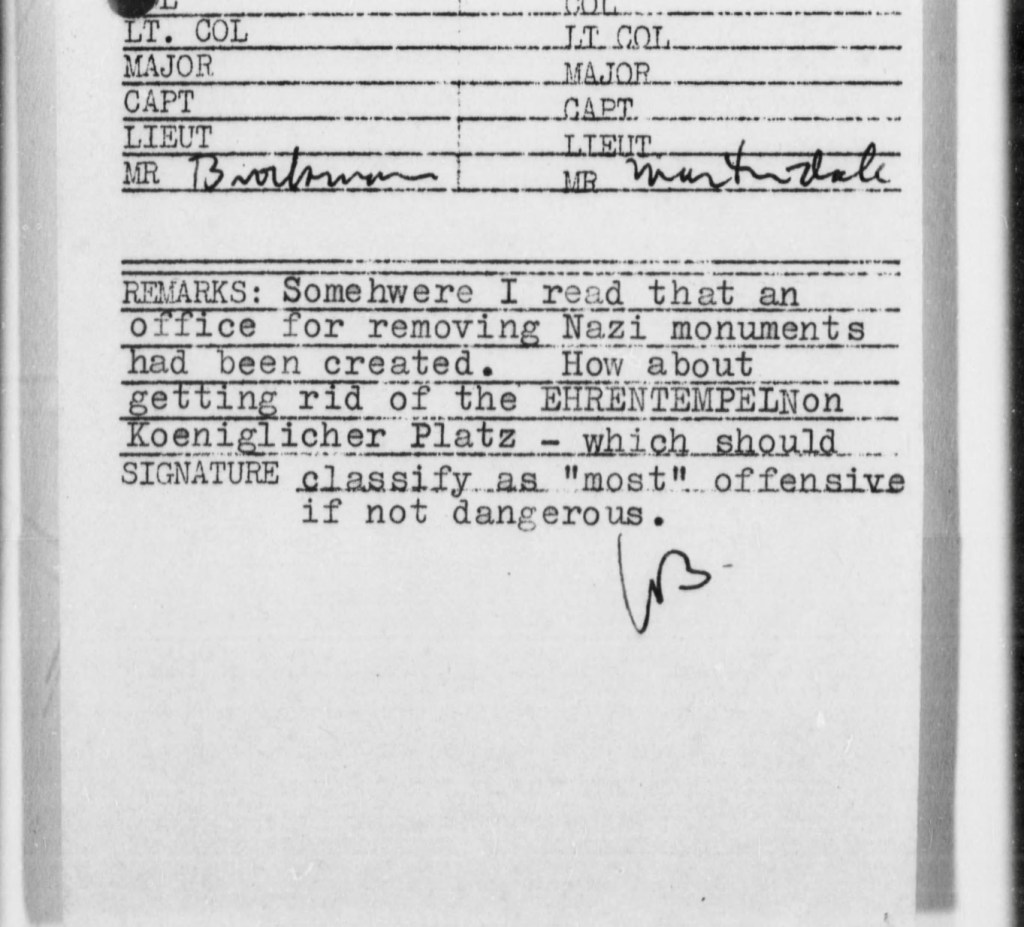 COL
LT. COL LT COL
MAJOR MAJOR
CAPT CAPT
LIEUT LIEUT
MR MR Martindale
REMARKS: Somehwere I read that an
office for removing Nazi monuments
had been created. How about
getting rid of the EHRENTEMPELNon
Koeniglicher Platz - which should
SIGNATURE classify as "most" offensive
if not dangerous.